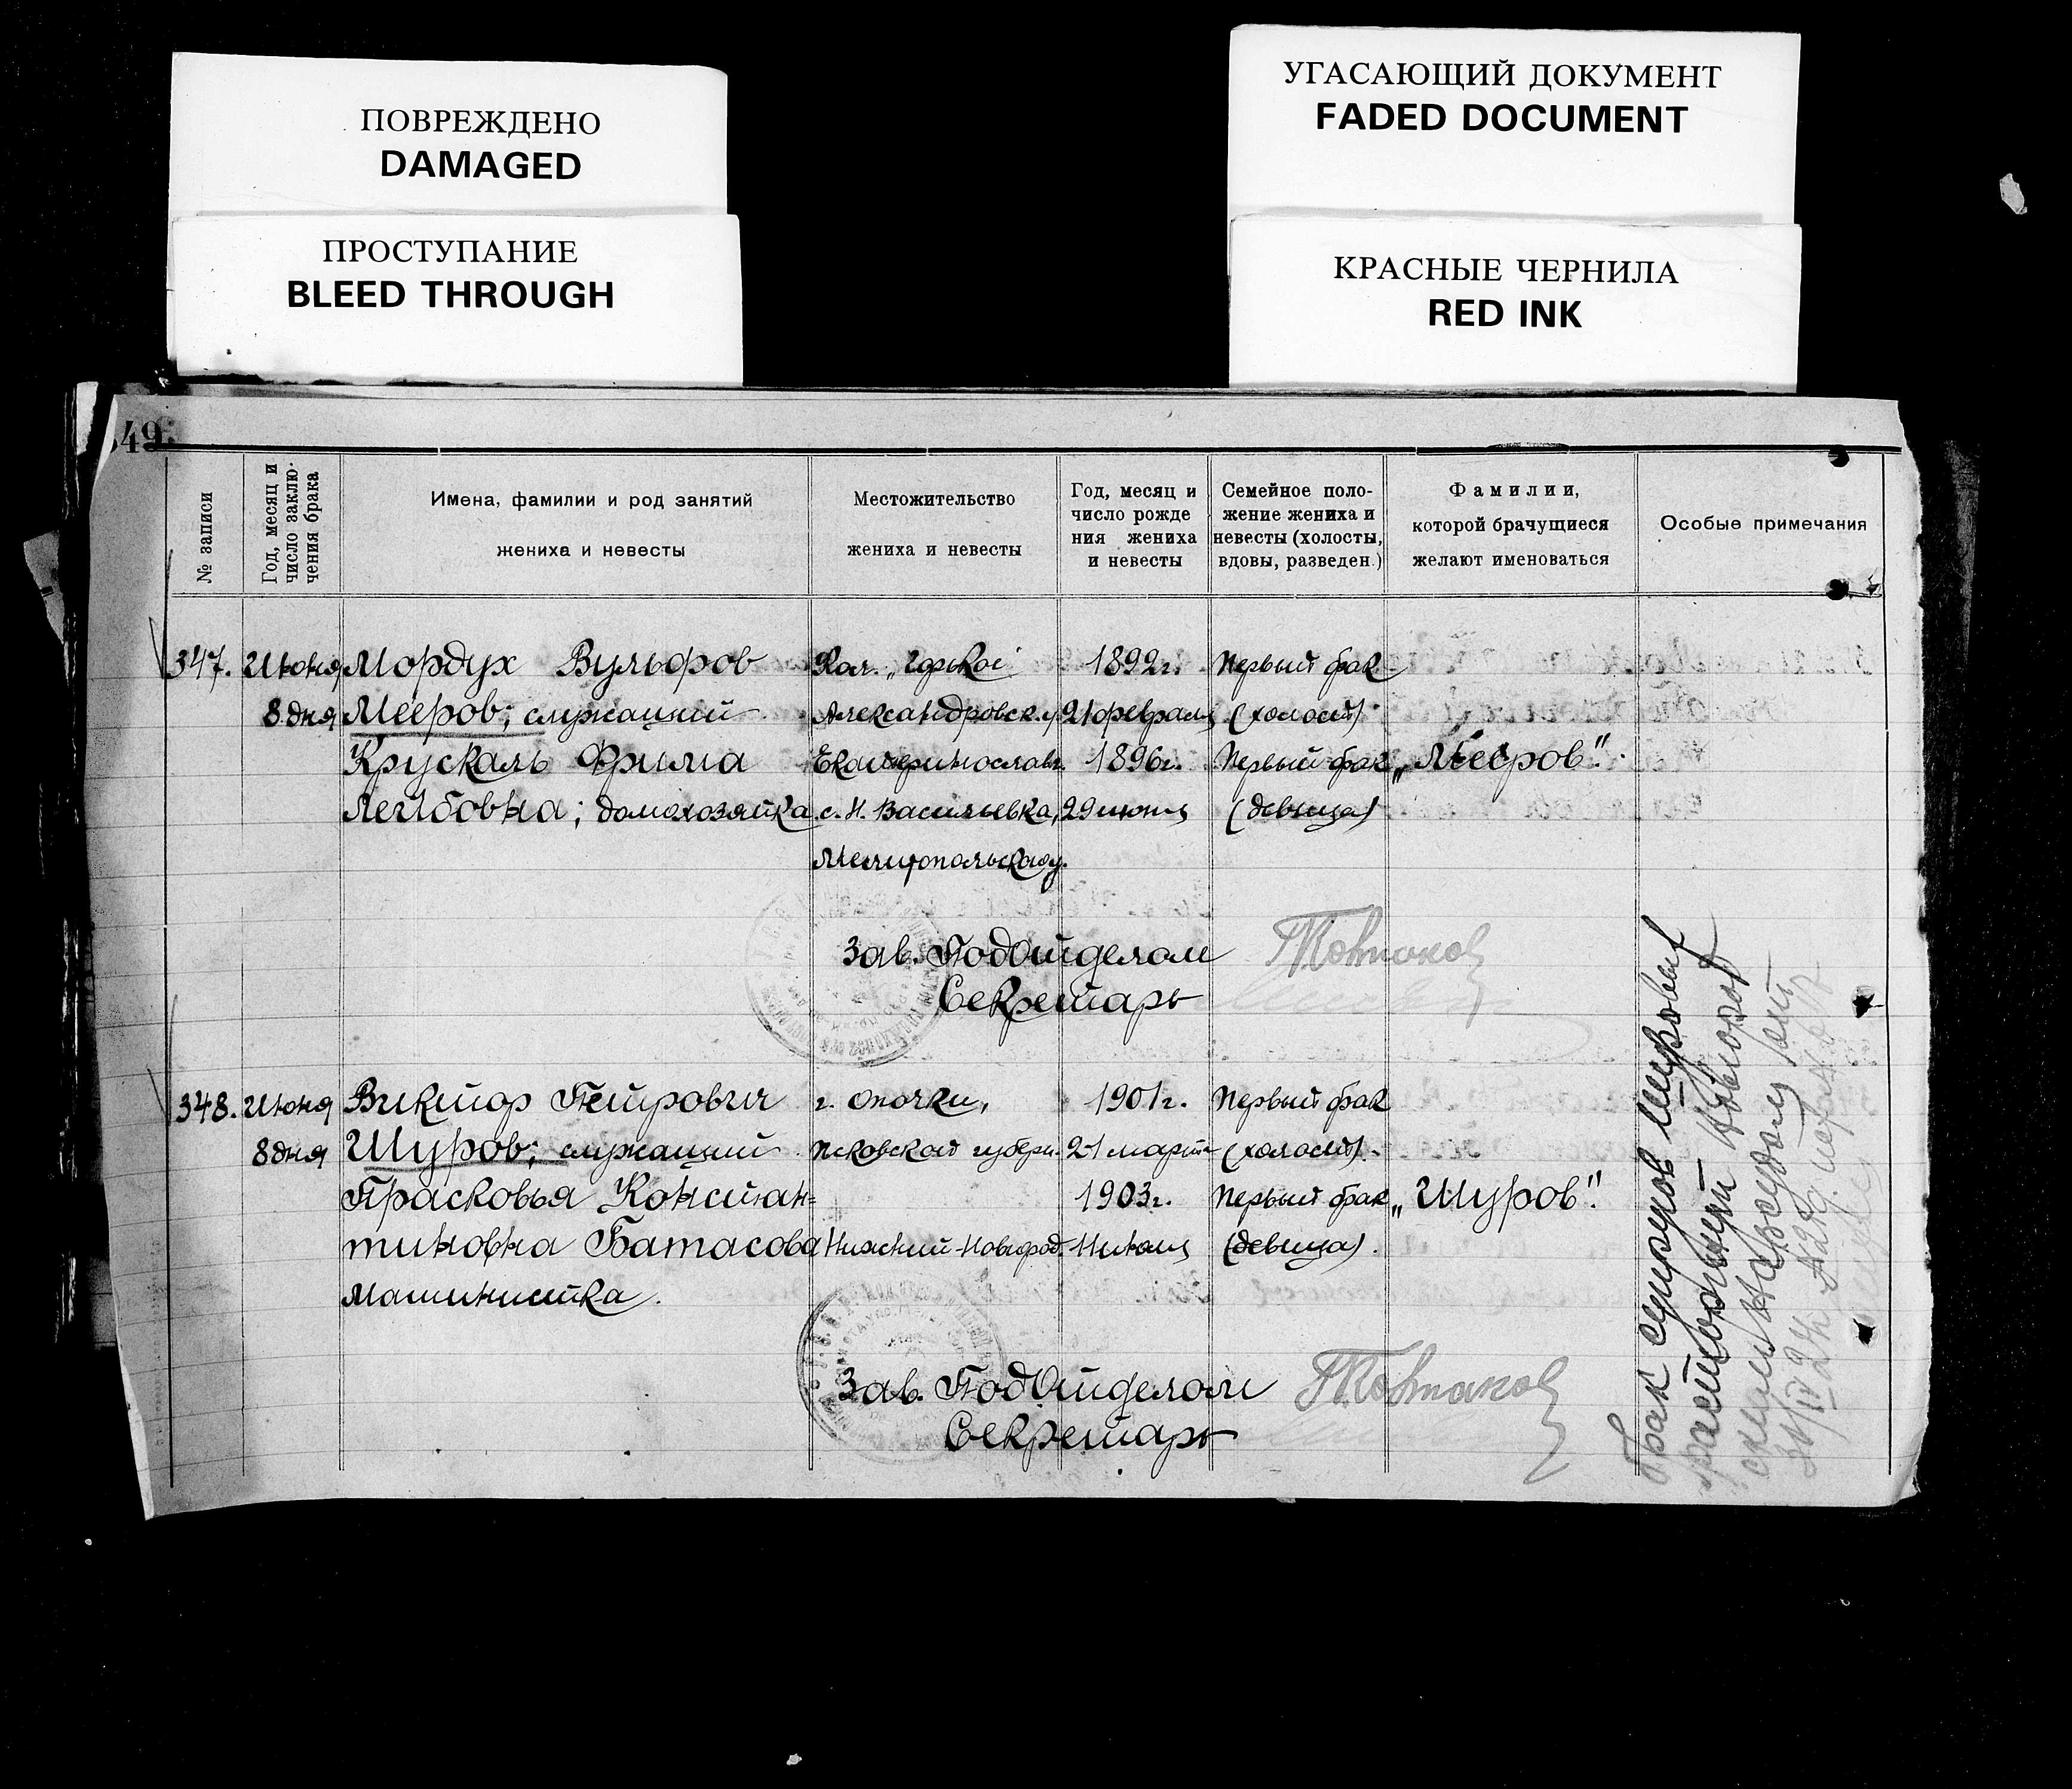 ПОВРЕЖДЕНО
DAMAGED
ПРОСТУПАНИЕ
BLEED THROUGH
УГАСАЮЩИЙ ДОКУМЕНТ
FADED DOCUMENT
КРАСНЫЕ ЧЕРНИЛА
RED INK
49
№ записи
Год, месяц и
число заклю-
чения брака
Имена, фамилии и род занятий
жениха и невесты
Местожительство
жениха и невесты
Год, месяц и
число рожде
ния жениха
и невесты
Семейное поло-
жение жениха и
невесты (холосты,
вдовы, разведен.)
Фамилии,
которой брачущиеся
желают именоваться
Особые примечания
347. Июня Мордух Вульфов Кол. „Горькая 1892г. Первый брак
8 дня Мееров; служащий Александровск.у. 21 февраля (холост)
Крускаль Фрима Екатеринославг. 1896г. Первый брак „Мееров".
Лейбовна; домохозяйка с. Н. Васильевка, 29 июня (девица)
Мелитопольскаоу.
Зав. ПодОтделом
Секретарь
348. Июня Виктор Петрович г. Опочки, 1901г. Первый брак
8 дня Шуров; служащий Псковской губерн. 21 марта (холост).
Прасковья Констан= 1903г. Первый брак „Шуров".
тиновна Батасова Нижний-Новгород. 11 июля (девица).
Машинистка.
Зав. ПодОтделом
Секретарь
Брак супругов Шуровых
расторгнут